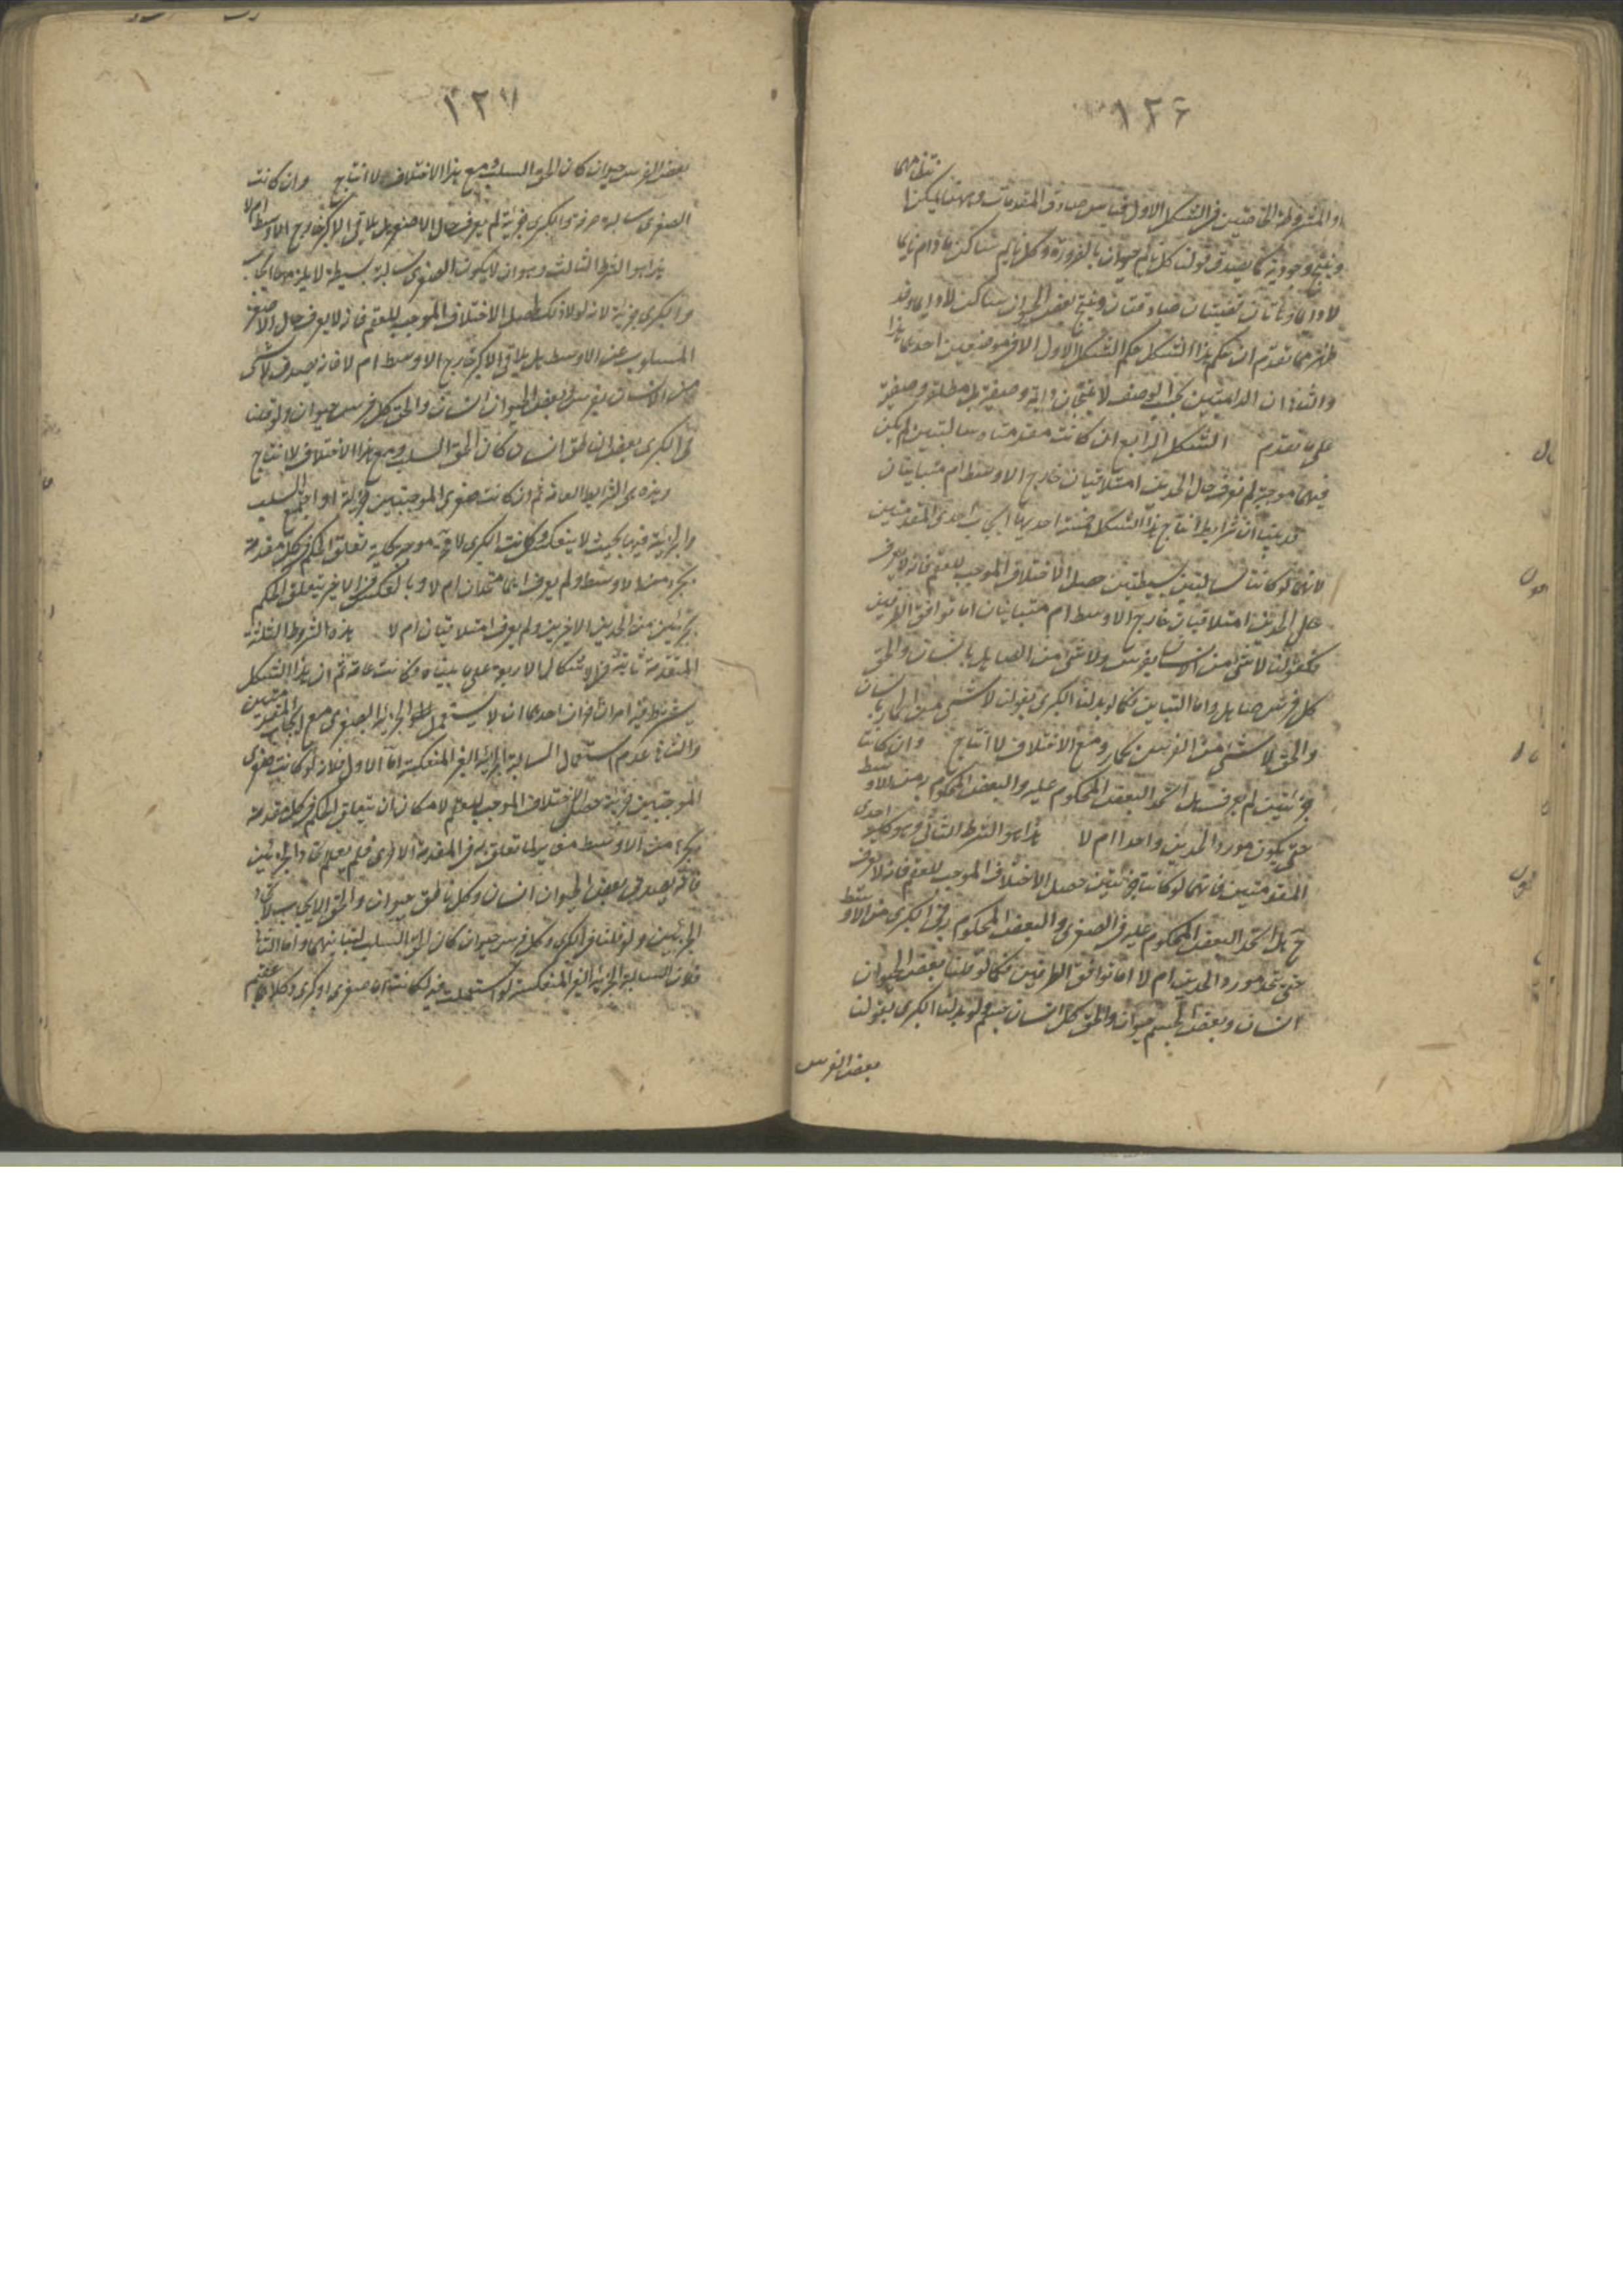 ١٢٦
او المشروطة الخاصتين في الشكل الاول قياس صادق المقدمات وههنا يمكن
وينتج وجودية كما يصدق قولنا كل نائم حيوان بالضرورة وكل نائم ساكن ما دام نائما
لا دائما قضيتان صادقتان وينتج بعض الحيوان ساكن لا دائما وقد
ظهر مما تقدم ان حكم هذا الشكل حكم الشكل الاول الا في موضعين احدهما هذا
والثاني ان بحسب الوصف لا ينتجان مطلقة وصفية
على ما تقدم الشكل الرابع ان كانت مقدمتاه سالبتين لم يكن
فيهما موجبة لم نعرف حال الحدين امتلاقيان خارج الاوسط ام متباينان
ان شرايط انتاج هذا الشكل خمسة احديها ايجاب احدى المقدمتين
لانهما لو كانتا سالبتين بسيطتين حصل الاختلاف الموجب للعقم فانه لا يعرف
هل الحدين امتلاقيان خارج الاوسط ام متباينان اما توافق الطرفين
فكقولنا لا شئ من الانسان بفرس ولا شئ من الصاهل بانسان والحق
كل فرس صاهل واما التباين فكما لو بدلنا الكبرى بقولنا لا شئ من الحمار بانسان
والحق لا شئ من الفرس بحمار ومع الاختلاف لا انتاج وان كانتا
جزئيتين لم يعرف هل اتحد البعض المحكوم عليه والبعض المحكوم به من الاوسط
حتى يكون مورد الحدين واحدا ام لا هذا هو الشرط الثاني وهو كلية احدى
المقدمتين فانهما لو كانتا جزئيتين حصل الاختلاف الموجب للعقم فانه لا يعرف
ح هل اتحد البعض المحكوم عليه في الصغرى والبعض المحكوم به في الكبرى من الاوسط
حتى يتحد مورد الحدين ام لا اما توافق الطرفين فكما لو قلنا بعض الحيوان
انسان وبعض الجسم حيوان والحق كل انسان جسم ولو بدلنا الكبرى بقولنا
بعض الفرس
١٢٧
بعض الفرس حيوان كان الحق السلب ومع هذا الاختلاف لا انتاج وان كانت
الصغرى سالبة صرفة والكبرى جزئية لم يعرف حال الاصغر هل يلاقى الاكبر خارج الاوسط ام لا
هذا هو الشرط الثالث وهو ان لا يكون الصغرى سالبة بسيطة لا يلزمها ايجاب
والكبرى جزئية لانه لولا ذلك لحصل الاختلاف الموجب للعقم فانه لا يعرف حال الاصغر
المسلوب عن الاوسط هل يلاقى الاكبر خارج الاوسط ام لا فانه يصدق لا شئ
من الانسان بفرس وبعض الحيوان انسان والحق كل فرس حيوان ولو قلنا
فى الكبرى بعض الناطق انسان كان الحق السلب ومع هذا الاختلاف لا انتاج
وهذه هى الشرايط العامة ثم ان كانت صغرى الموجبتين جزئية او اجتمع السلب
والجزئية فيها بحيث لا ينعكس وكانت الكبرى موجبة كلية تعلق الحكم فى كل مقدمة
بجزء من الاوسط ولم يعرف انهما متحدان ام لا وبالعكس فى الاخير يتعلق الحكم
بجزئين من الحدين الاخيرين ولم يعرف امتلاقيان ام لا هذه الشروط الثلثة
المتقدمة ثابتة فى الاشكال الاربعة على ما بيناه وكانت عامة ثم ان هذا الشكل
يشترط فيه امران اخران احدهما ان لا يستعمل الجزئية الصغرى مع ايجاب المقدمتين
والثانى عدم استعمال السالبة الجزئية الغير المنعكسة اما الاول فلانه لو كانت صغرى
الموجبتين جزئية حصل الاختلاف الموجب للعقم لامكان ان يتعلق الحكم فى كل مقدمة
بجزء من الاوسط مغاير لما تعلق به فى المقدمة الاخرى فلم يعلم
فانه يصدق بعض الحيوان انسان وكل ناطق حيوان والحق الايجاب
ولو قلنا فى الكبرى وكل فرس حيوان كان الحق السلب لتباينهما واما الثانى
فلان السالبة الجزئية الغير المنعكسة لو استعملت فيه لكانت اما صغرى او كبرى وكلاهما عقيم